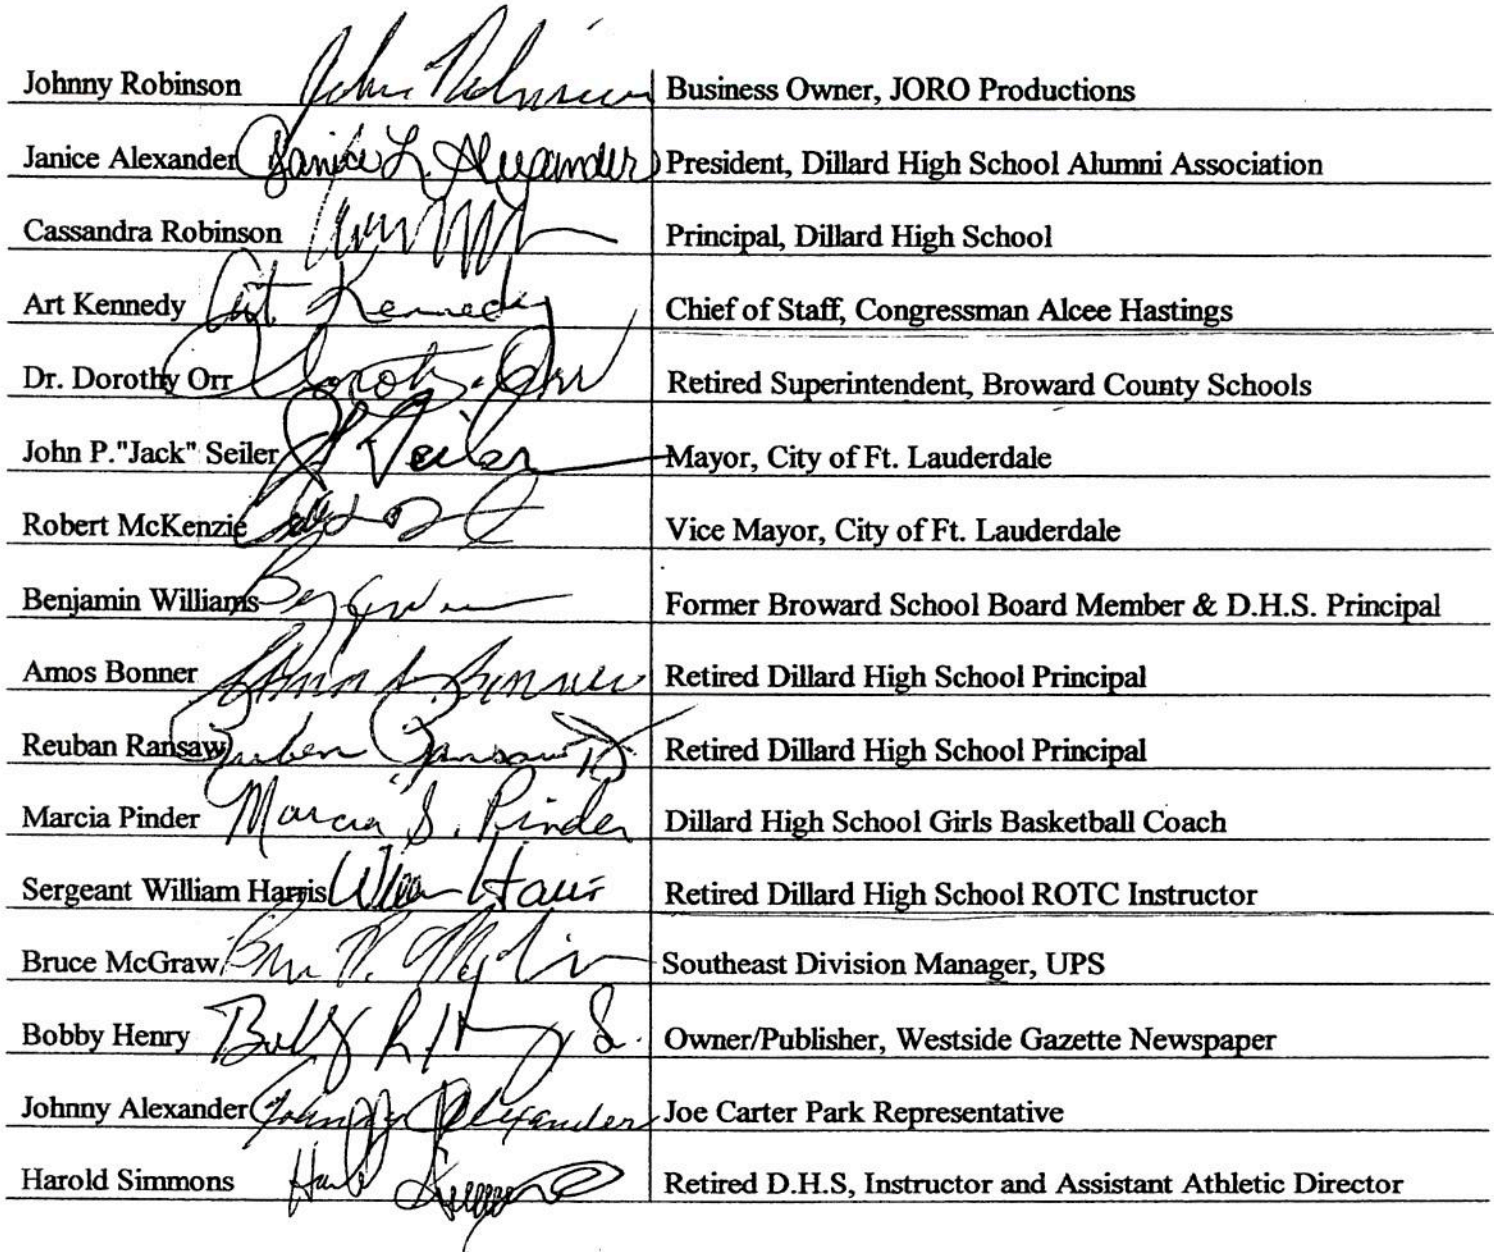 Johnny Robinson John Robinson Business Owner, JORO Productions
Janice Alexander Janice L. Alexander President, Dillard High School Alumni Association
Cassandra Robinson Principal, Dillard High School
Art Kennedy Art Kennedy Chief of Staff, Congressman Alcee Hastings
Dr. Dorothy Orr Dorothy Orr Retired Superintendent, Broward County Schools
John P."Jack" Seiler Seiler Mayor, City of Ft. Lauderdale
Robert McKenzie Vice Mayor, City of Ft. Lauderdale
Benjamin Williams Former Broward School Board Member & D.H.S. Principal
Amos Bonner Bonner Retired Dillard High School Principal
Reuban Ransaw Ruben Ransaw Retired Dillard High School Principal
Marcia Pinder Marcia S. Pinder Dillard High School Girls Basketball Coach
Sergeant William Harris Retired Dillard High School ROTC Instructor
Bruce McGraw Southeast Division Manager, UPS
Bobby Henry Owner/Publisher, Westside Gazette Newspaper
Johnny Alexander Johnny Alexander Joe Carter Park Representative
Harold Simmons Retired D.H.S, Instructor and Assistant Athletic Director